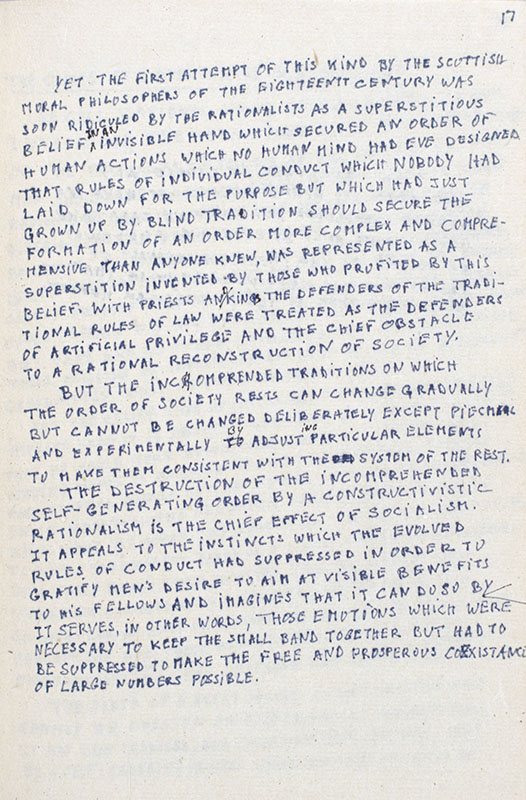 17
YET THE FIRST ATTEMPT OF THIS KIND BY THE SCOTTISH
MORAL PHILOSOPHERS OF THE EIGHTEENTH CENTURY WAS
SOON RIDICULED BY THE RATIONALISTS AS A SUPERSTITIOUS
BELIEF IN AN INVISIBLE HAND WHICH SECURED AN ORDER OF
HUMAN ACTIONS WHICH NO HUMAN MIND HAD EVE DESIGNED
THAT RULES OF INDIVIDUAL CONDUCT WHICH NOBODY HAD
LAID DOWN FOR THE PURPOSE BUT WHICH HAD JUST
GROWN UP BY BLIND TRADITION SHOULD SECURE THE
FORMATION OF AN ORDER MORE COMPLEX AND COMPRE-
MENSIVE THAN ANYONE KNEW, WAS REPRESENTED AS A
SUPERSTITION INVENTED BY THOSE WHO PROFITED BY THIS
BELIEF. WITH PRIESTS AND KINGS THE DEFENDERS OF THE TRADI-
TIONAL RULES OF LAW WERE TREATED AS THE DEFENDERS
OF ARTIFICIAL PRIVILEGE AND THE CHIEF OBSTACLE
TO A RATIONAL RECONSTRUCTION OF SOCIETY.
BUT THE INCOMPRENDED TRADITIONS ON WHICH
THE ORDER OF SOCIETY RESTS CAN CHANGE GRADUALLY
BUT CANNOT BE CHANGED DELIBERATELY EXCEPT PIECMEAL
AND EXPERIMENTALLY BY ADJUSTING PARTICULAR ELEMENTS
TO MAKE THEM CONSISTENT WITH THE SYSTEM OF THE REST.
THE DESTRUCTION OF THE INCOMPREHENDED
SELF-GENERATING ORDER BY A CONSTRUCTIVISTIC
RATIONALISM IS THE CHIEF EFFECT OF SOCIALISM.
IT APPEALS TO THE INSTINCTS WHICH THE EVOLVED
RULES OF CONDUCT HAD SUPPRESSED IN ORDER TO
GRATIFY MEN'S DESIRE TO AIM AT VISIBLE BENEFITS
TO HIS FELLOWS AND IMAGINES THAT IT CAN DO SO BY
IT SERVES, IN OTHER WORDS, THOSE EMOTIONS WHICH WERE
NECESSARY TO KEEP THE SMALL BAND TOGETHER BUT HAD TO
BE SUPPRESSED TO MAKE THE FREE AND PROSPEROUS COEXISTANCE
OF LARGE NUMBERS POSSIBLE.